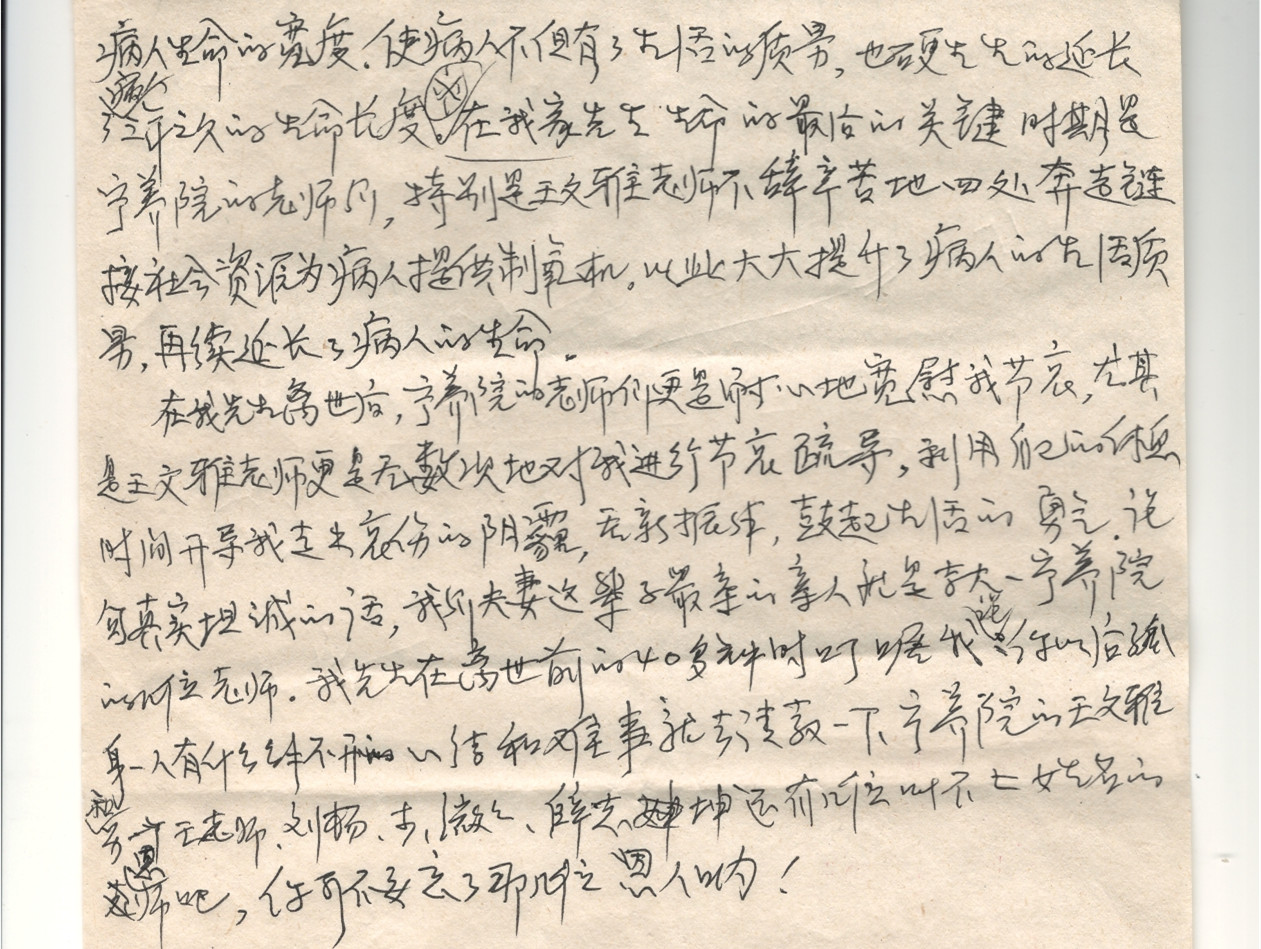 病人生命的宽度.使病人不但有了生活的质量,也硬生生的延长
了病人三年之久的生命长度。在我家先生生命的最后的关键时期是
宁养院的老师们,特别是王文雅老师不辞辛苦地四处奔走链
接社会资源为病人提供制氧机。以此大大提升了病人的生活质
量,再续延长了病人的生命。
在我先生离世后,宁养院的老师们更是耐心地宽慰我节哀,尤其
是王文雅老师更是无数次地对我进行节哀疏导,利用自己的休息
时间开导我走出哀伤的阴霾,重新振作,鼓起生活的勇气.说
句真实坦诚的话,我们夫妻这辈子最亲的亲人就是 宁养院
的几位老师.我先生在离世前的40多 时叮嘱我 你以后孤
身一人有什么解不开的心结和难事就去请教一下宁养院的王文雅
和另 王老师、刘杨、 薛 坤还有几位叫不上姓名的
恩师吧,你可不要忘了那几位恩人哟!